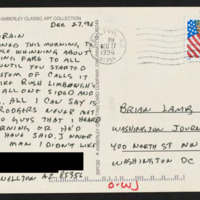 AMBERLEY CLASSIC ART COLLECTION
Dec 27, 96
RAIN
NED THIS MORNING, T
LE WHINNING ABOUT
ING FARE TO ALL
UNTIL YOU STARTED
TOM OF CALLS IT
IKE RUSH LIMBAUGH'S
ALL ONE SIDED AND
. ALL I CAN SAY IS
RODGERS NEVER MET
D GUYS THAT I HEARD
RNING OR HE'D
HAVE SAID, I NEVER
MAN I DIDN'T LIKE
NELLTON AZ 85356
PM
1996
BRIAN LAMB
WASHINGTON JOURN
400 NORTH ST NW
WASHINGTON DC
O-WJ